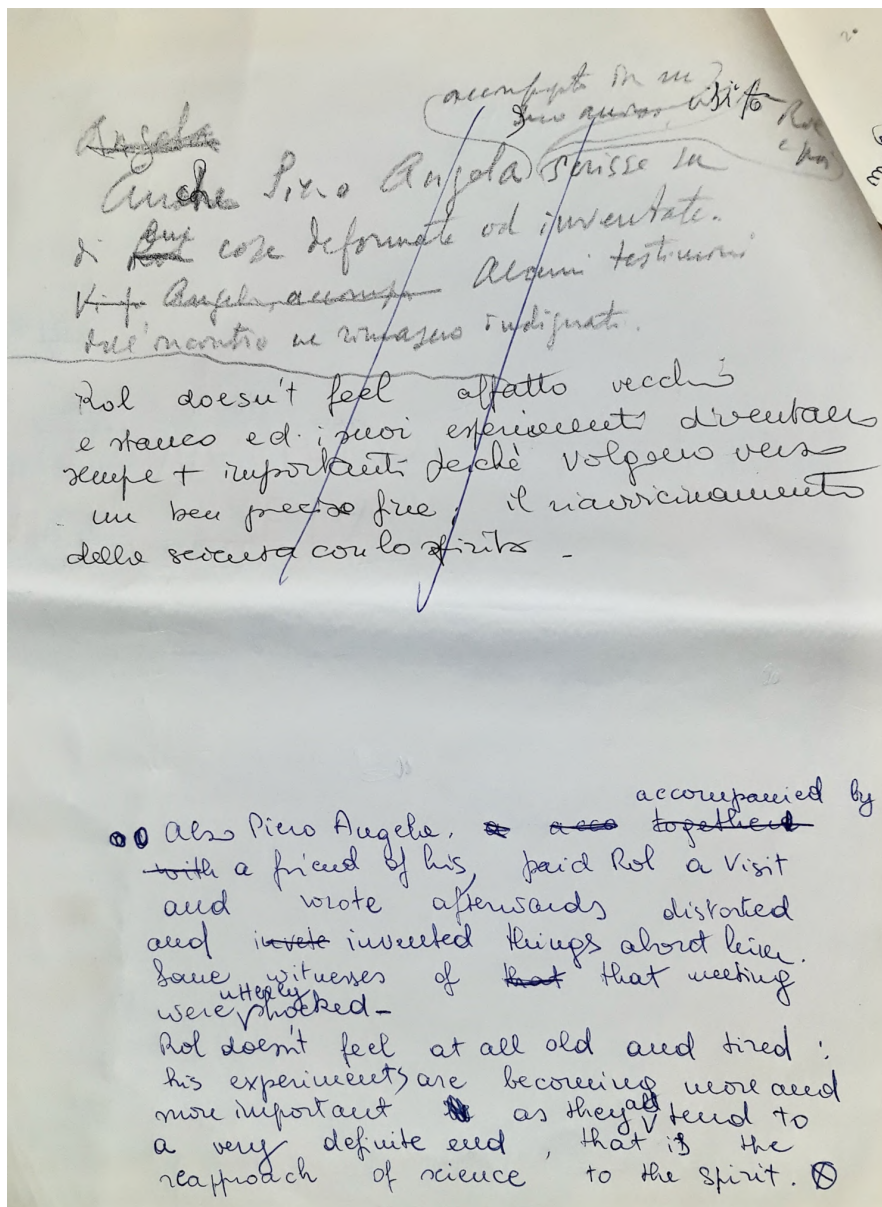 accompagnato da un
suo amico, visitò Rol
e poi
Angela
Anche Piero Angela scrisse su
di Rol lui cose deformate od inventate.
Angela, accomp Alcuni testimoni
dell'incontro ne rimasero indignati.
Rol doesn't feel affatto vecchio
e stanco ed i suoi esperimenti diventano
sempre + importanti perchè volgono verso
un ben preciso fine, il riavvicinamento
della scienza con lo spirito -
accompanied by
Also Piero Angela, a acco together
with a friend of his, paid Rol a visit
and wrote afterwards distorted
and invete invented things about him.
Some witnesses of that that meeting
utterly
were shocked -
Rol doesn't feel at all old and tired :
his experiments are becoming more and
more important as they all tend to
a very definite end, that is the
reapproach of science to the spirit.